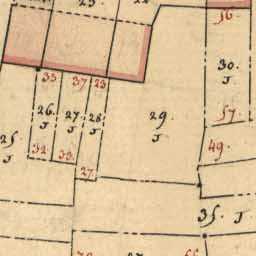 23.
22
16
30.
J
33 37 23
26.
J
27.
J
28
J
29
J
57.
25
J
32.
33.
49.
27.
35. J